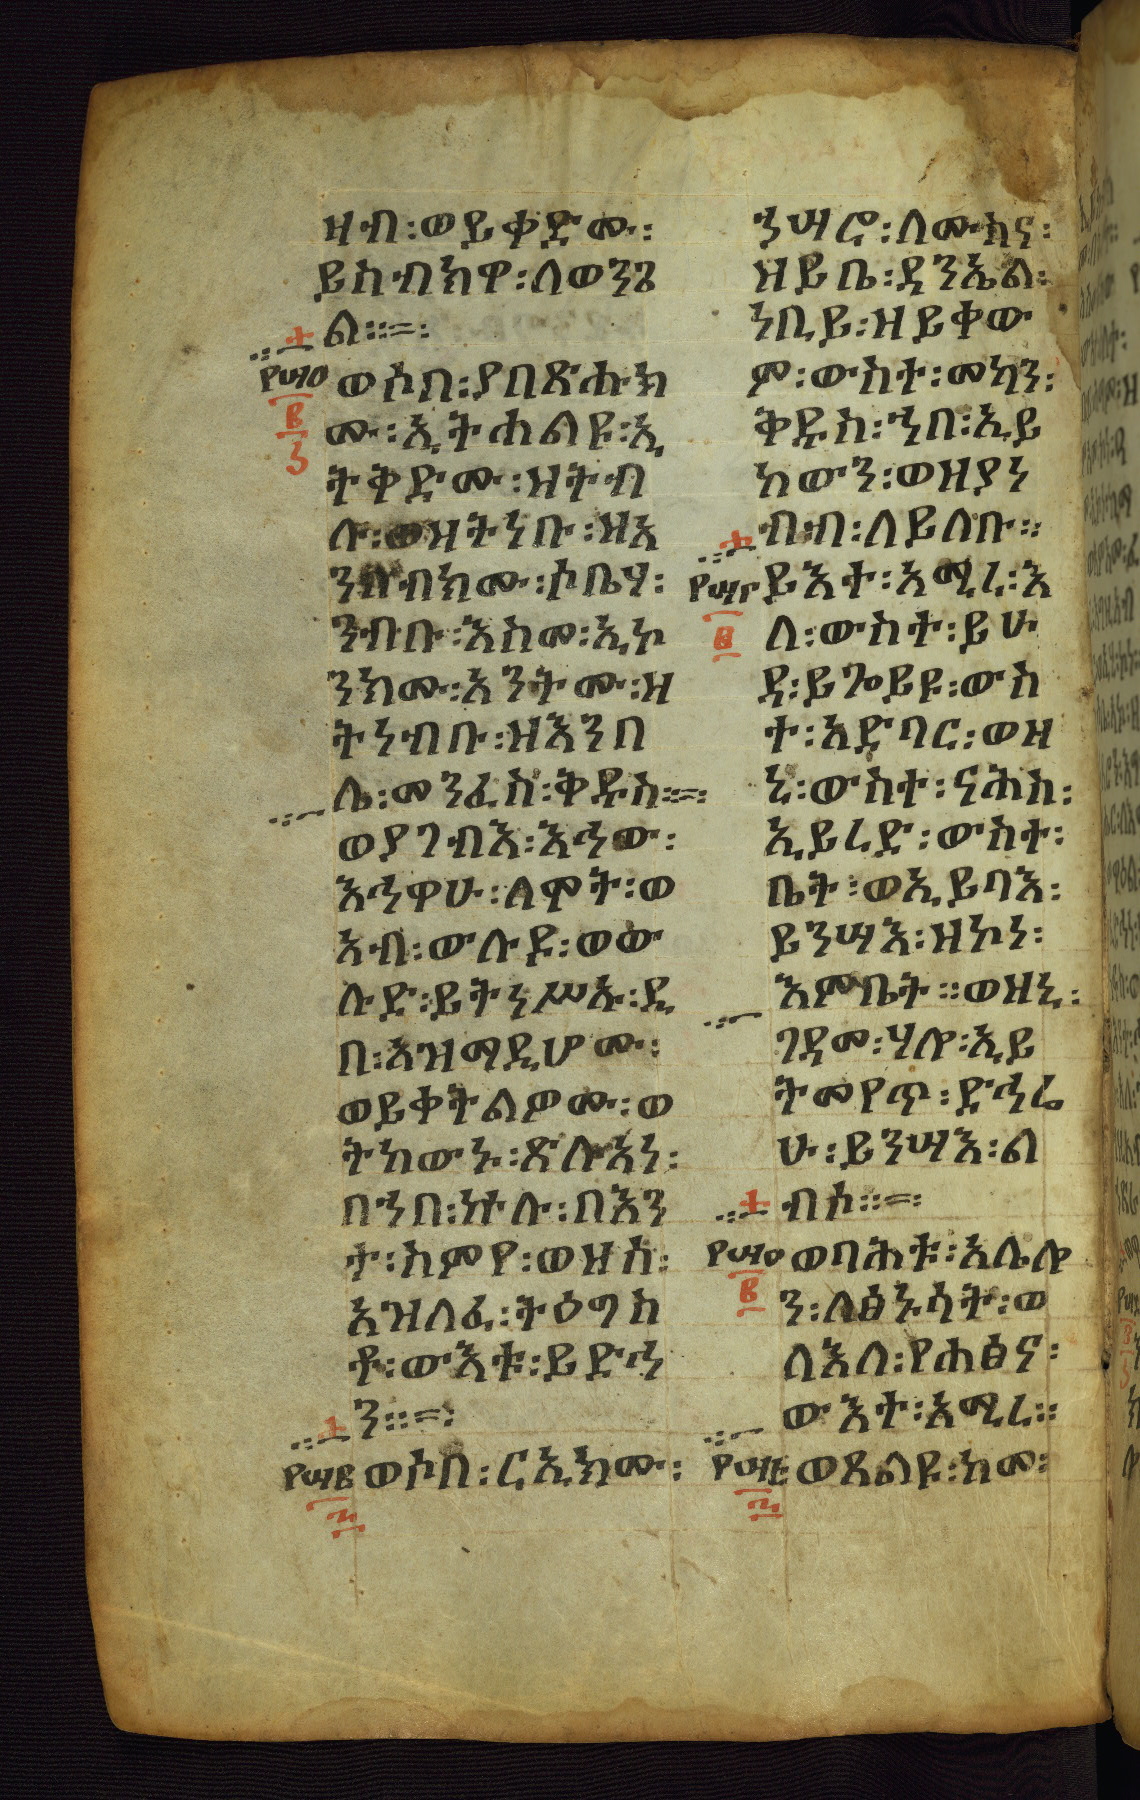 ዝብ፡ወይቀድሙ፡
ይስብክዋ፡ለወንጌ
ል።=፡
ወሶበ፡ያበጽሑክ
ሙ፡ኢትሐልዩ፡ኢ
ትቅድሙ፡ዝትብ
ሉ፡ወዝትነቡ፡ዝእ
ንበብክሙ፡ሶቤሃ፡
ንብቡ፡እስመ፡ኢኮ
ንክሙ፡አንትሙ፡ዘ
ትነብቡ፡ዘእንበ
ሌ፡መንፈስ፡ቅዱስ።=፡
ወያገብእ፡እኅው፡
እኅዋሁ፡ለሞት፡ወ
አብ፡ውሉዶ፡ወው
ሉድ፡ይትነሥኡ፡ዲ
በ፡አዝማዲሆሙ፡
ወይቀትልዎሙ፡ወ
ትከውኑ፡ጽሉአነ፡
በኀበ፡ኵሉ፡በእን
ተ፡ስምየ፡ወዝሰ፡
እዝለፈ፡ትዕግስ
ቶ፡ውእቱ፡ይድኅ
ን።=፡
ወሶበ፡ርኢክሙ፡
ኀሣሮ፡ለሙስና፡
ዘይቤ፡ዳንኤል፡
ነቢይ፡ዘይቀው
ም፡ውስተ፡መካን፡
ቅዱስ፡ኀበ፡ኢይ
ከውን፡ወዘያነ
ብብ፡ለይለቡ።
ይእተ፡አሚረ፡እ
ለ፡ውስተ፡ይሁ
ዳ፡ይጐይዩ፡ውስ
ተ፡አድባር፡ወዘ
ኒ፡ውስተ፡ናሕስ፡
ኢይረድ፡ውስተ፡
ቤት፡ወኢይባእ፡
ይንሣእ፡ዘኮነ፡
እምቤት።ወዘኒ፡
ገዳመ፡ሃሎ፡ኢይ
ትመየጥ፡ድኅሬ
ሁ፡ይንሣእ፡ል
ብሰ።=፡
ወባሕቱ፡አሌሎ
ን፡ለፅኑሳት፡ወ
ለእለ፡የሐፅና፡
ውእተ፡አሚረ።
ወጸልዩ፡ከመ፡